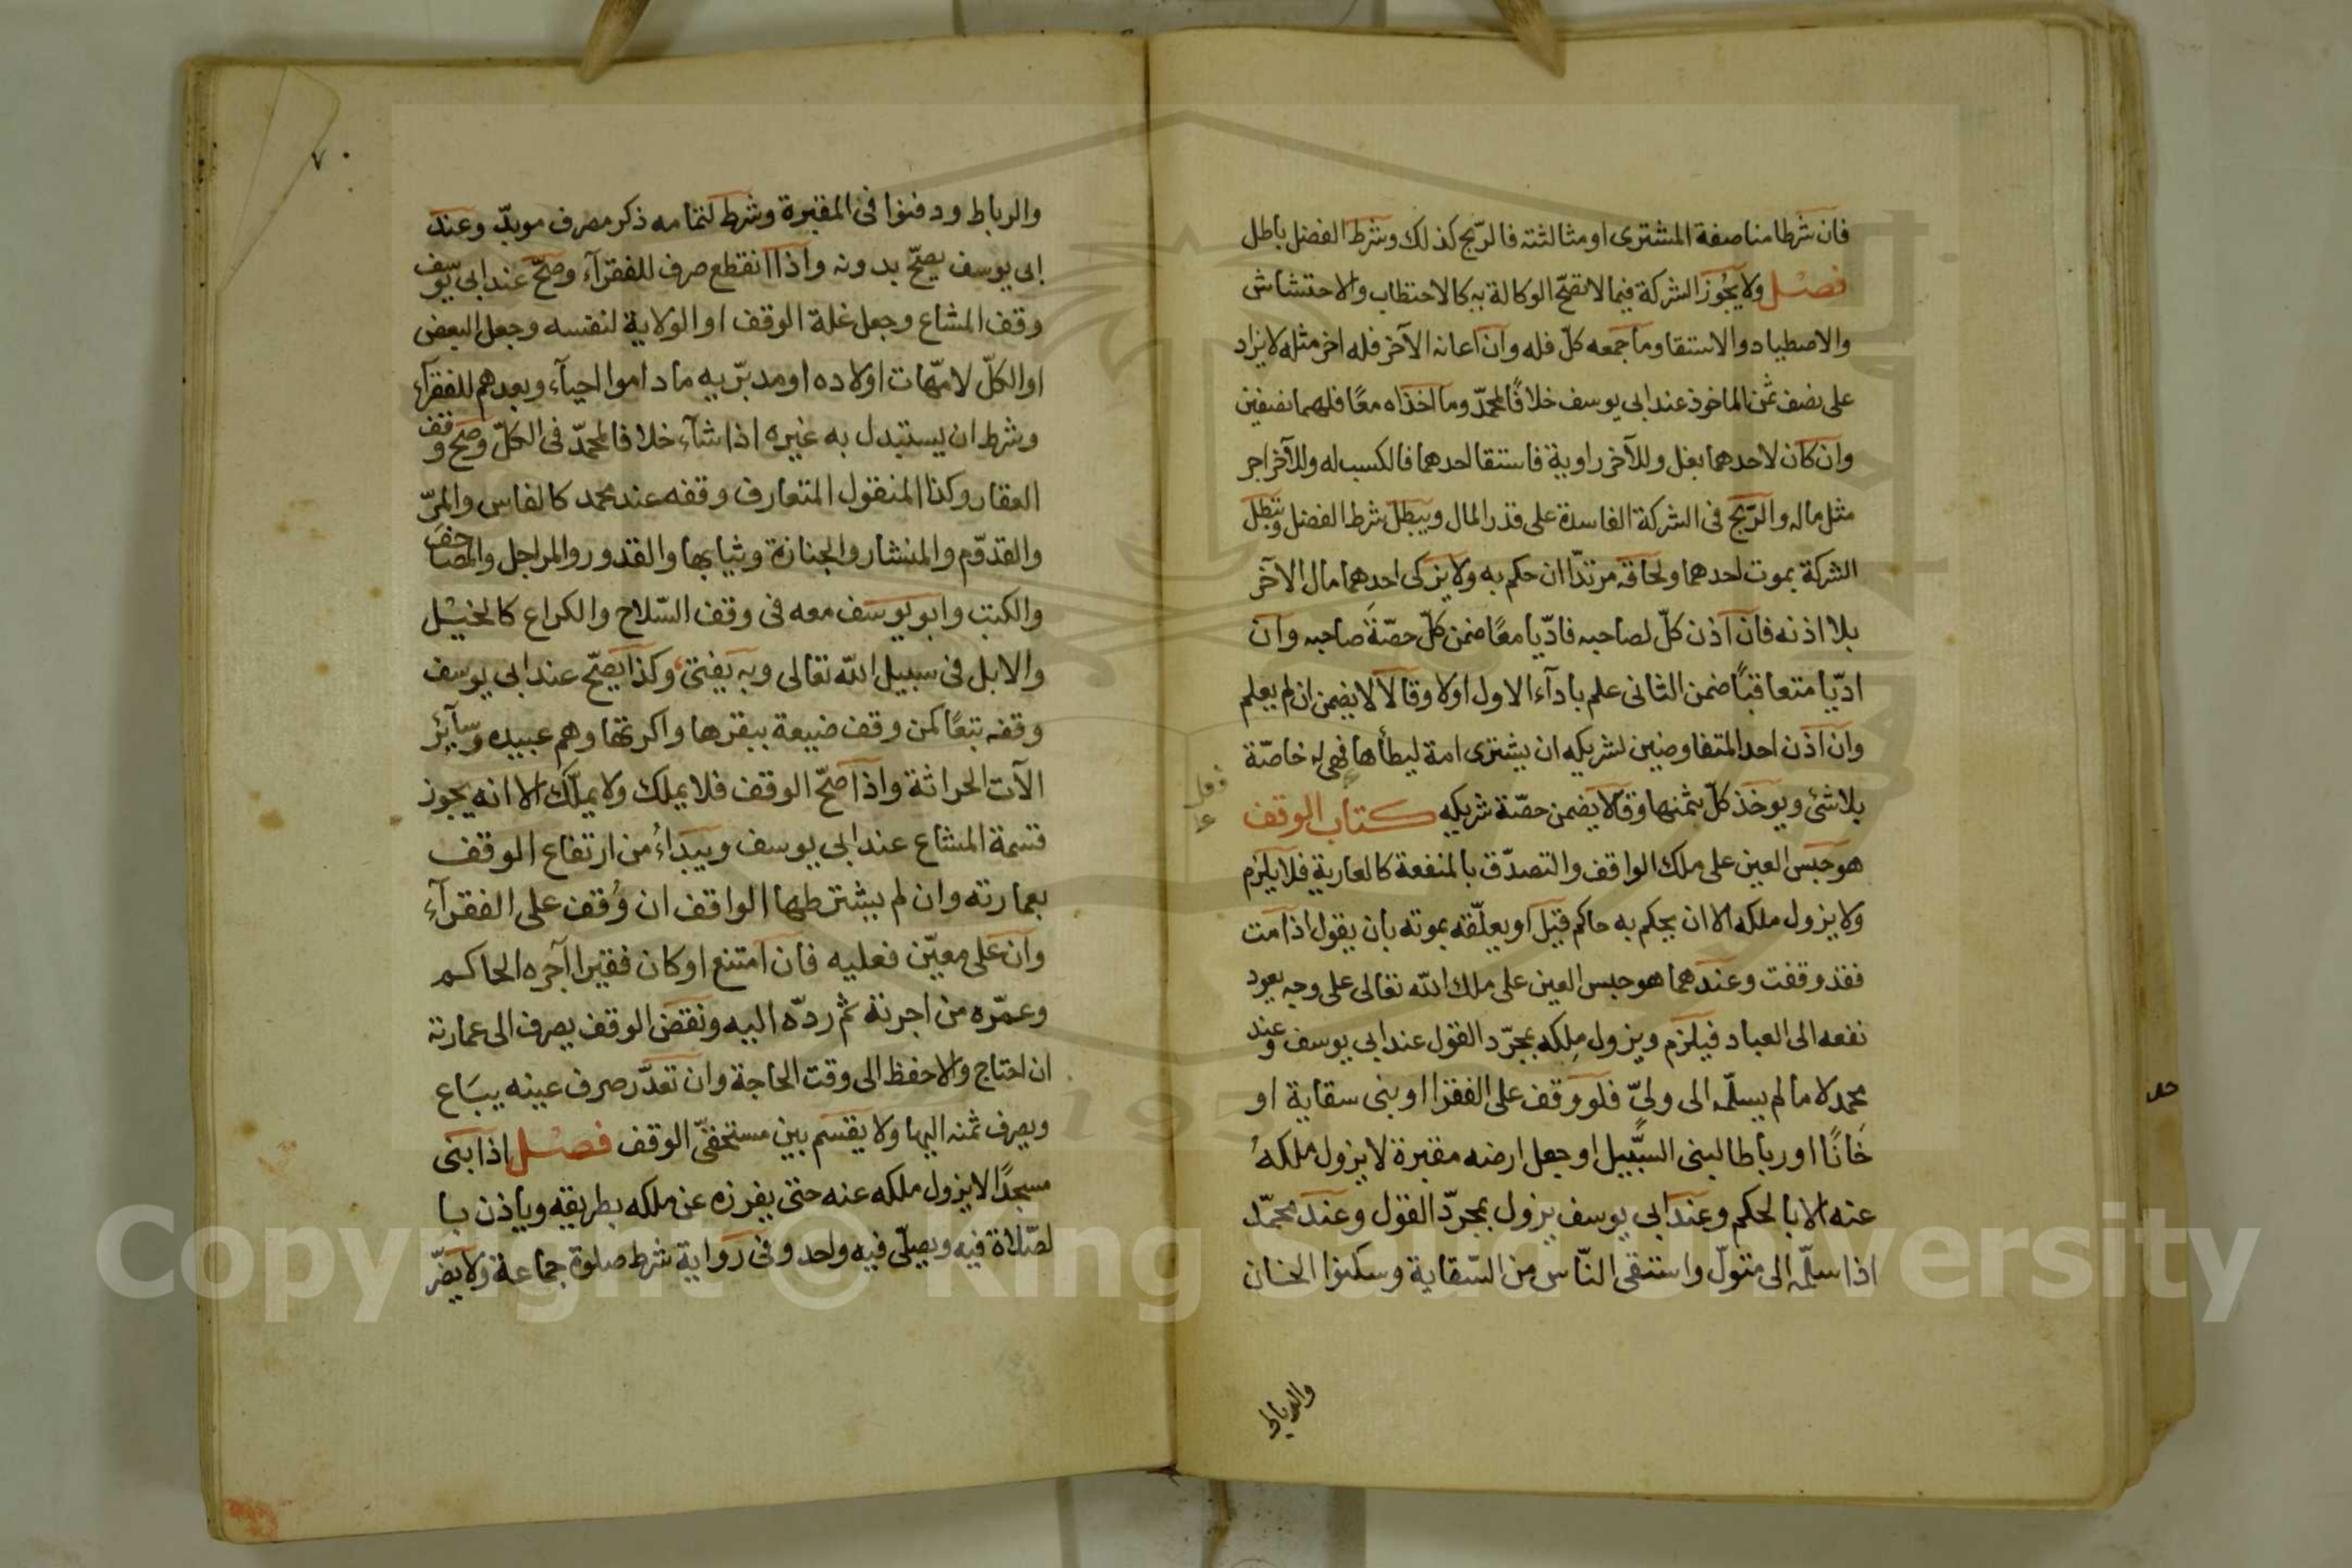 فان شرطا مناصفة المشترى او مثالثته فالرّبح كذلك وشرط الفضل باطل
فصل ولا يجُوز الشركة فيما لا تصحّ الوكالة به كالاحتطاب والاحتشاش
والاصطياد والاستقا وما جمعه كلّ فله وان اعانه الآخر فله اجر مثله لا يزاد
على نصف ثمن الماخوذ عند ابى يوسف خلافًا لمحمّد وما اخذاه معًا فلهما نصفين
وان كان لاحدهما بغل وللآخر راوية فاستقا احدهما فالكسب له وللآخر اجر
مثل ماله والرّبح فى الشركة الفاسدة على قدر المال ويبطل شرط الفضل وتبطل
الشركة بموت احدهما ولحاقه مرتدّا ان حكم به ولا يزكى احدهما مال الآخر
بلا اذنه فان اذن كلّ لصاحبه فادّيا معًا ضمن كلّ حصّة صاحبه وان
ادّيا متعاقبًا ضمن الثانى علم باداء الاول او لا وقالا لا يضمن ان لم يعلم
وان اذن احد المتفاوضين لشريكه ان يشترى امة ليطأها فهى له خاصّة
بلا شئ ويوخذ كلّ بثمنها وقالا يضمن حصّة شريكه كتاب الوقف
هو حبس العين على ملك الواقف والتصدّق بالمنفعة كالعارية فلا يلزم
ولا يزول ملكه الا ان يحكم به حاكم قيل او يعلّقه بموته بان يقول اذا مت
فقد وقفت وعندهما هو حبس العين على ملك الله تعالى على وجه يعود
نفعه الى العباد فيلزم ويزول مِلكه بمجرّد القول عند ابى يوسف وعند
محمد لا ما لم يسلّمه الى ولىّ فلو وقف على الفقرا او بنى سقاية او
خَانًا او رباطا لبنى السَّبيل او جعل ارضه مقبرة لا يزول ملكهُ
عنه الا بالحكم وعند ابى يوسف يزول بمجرّد القول وعند محمّد
اذا سلّمه الى متولّ واستقى النّاس من السّقاية وسكنوا الخان
والرباط
٧٠
والرباط ودفنوا فى المقبرة وشرط لتمامه ذكر مصرف موبدّ وعند
ابى يوسف يصحّ بدونه واذا انقطع صرف للفقرآء وصحّ عند ابى يوسف
وقف المشاع وجعل غلة الوقف او الولاية لنفسه وجعل البعض
او الكلّ لامّهات اولاده او مدبّريه ما داموا احيآء وبعدهم للفقرآء
وشرط ان يستبدل به غيره اذا شآء خلافا لمحمّد فى الكلّ وصحّ وقف
العقار وكذا المنقول المتعارف وقفه عند محمد كالفاس والمرّ
والقدّوم والمنشار والجنازة وثيابها والقدور والمراجل والمصاحف
والكتب وابو يوسف معه فى وقف السّلاح والكراع كالخيْل
والابل فى سبيل الله تعالى وبه يفتى وكذا يصحّ عند ابى يوسف
وقفه تبعًا كمن وقف ضيعة ببقرها واكرتها وهم عبيده وسآئر
الآت الحراثة واذا صحّ الوقف فلا يملك ولا يملّك الا انه يجوز
قسمة المشاع عند ابى يوسف ويبدأُ من ارتفاع الوقف
بعمارته وان لم يشترطها الواقف ان وُقف على الفقرآء
وان على معيّن فعليه فان امتنع او كان فقيرا آجره الحاكم
وعمّره من اجرتة ثم ردّه اليه ونقض الوقف يصرف الى عمارته
ان احتاج والا حفظ الى وقت الحاجة وان تعذّر صرف عينه يبَاع
ويصرف ثمنه اليها ولا يقسم بين مستحقّى الوقف فصْل اذا بنى
مسجدًا لا يزول ملكه عنه حتى يفرزه عن ملكه بطريقه وياذن با
لصّلاة فيه ويصلّى فيه واحد وفى رواية شرط صلوة جماعة ولا يضرّ
Copyright © King Saud University
1957